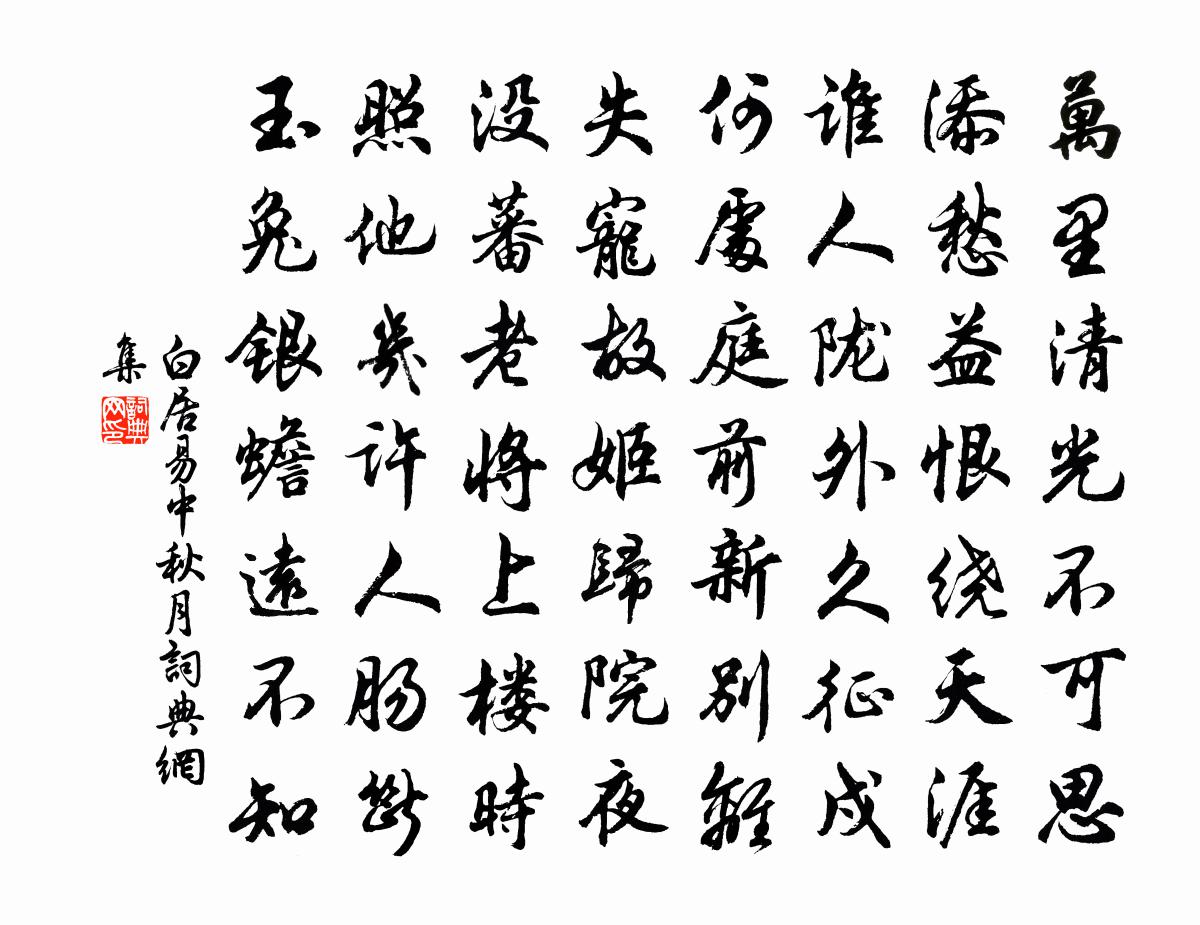 萬里清光不可思
添愁益恨绕天涯
谁人陇外久征戍
何處庭前新别離
失寵故姬歸院夜
没蕃老將上楼時
照他幾许人肠斷
玉兔銀蟾遠不知
白居易中秋月詞典網
集
詞典
网印